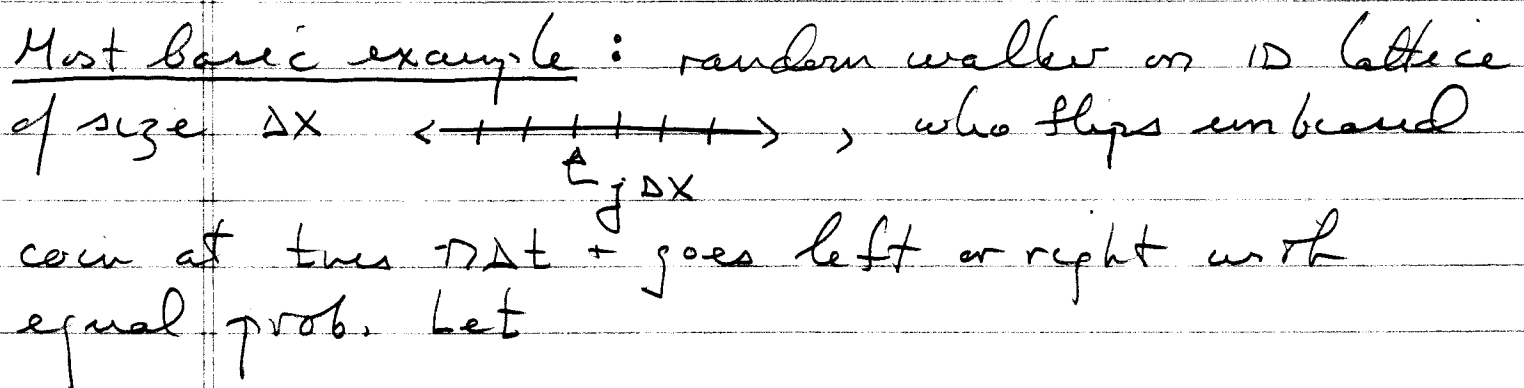 Most basic example : random walker on 1D lattice
of size Δx , who flips unbiased
jΔx
coin at times nΔt + goes left or right with
equal prob. Let